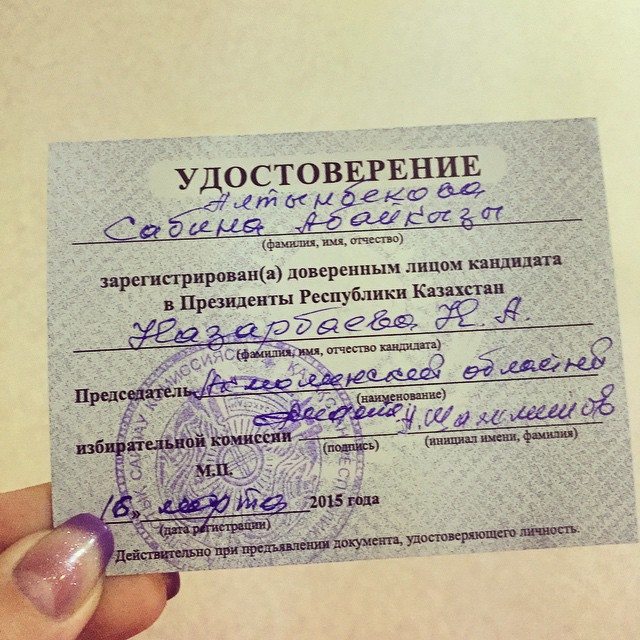 УДОСТОВЕРЕНИЕ
Алтынбекова
Сабина Абайкызы
(фамилия, имя, отчество)
зарегистрирован(а) доверенным лицом кандидата
в Президенты Республики Казахстан
Назарбаева Н. А.
(фамилия, имя, отчество кандидата)
Председатель Акмолинской областной
(наименование)
избирательной комиссии
(подпись) (инициал имени, фамилия)
М.П.
16 » марта 2015 года
(дата регистрации)
Действительно при предъявлении документа, удостоверяющего личность.